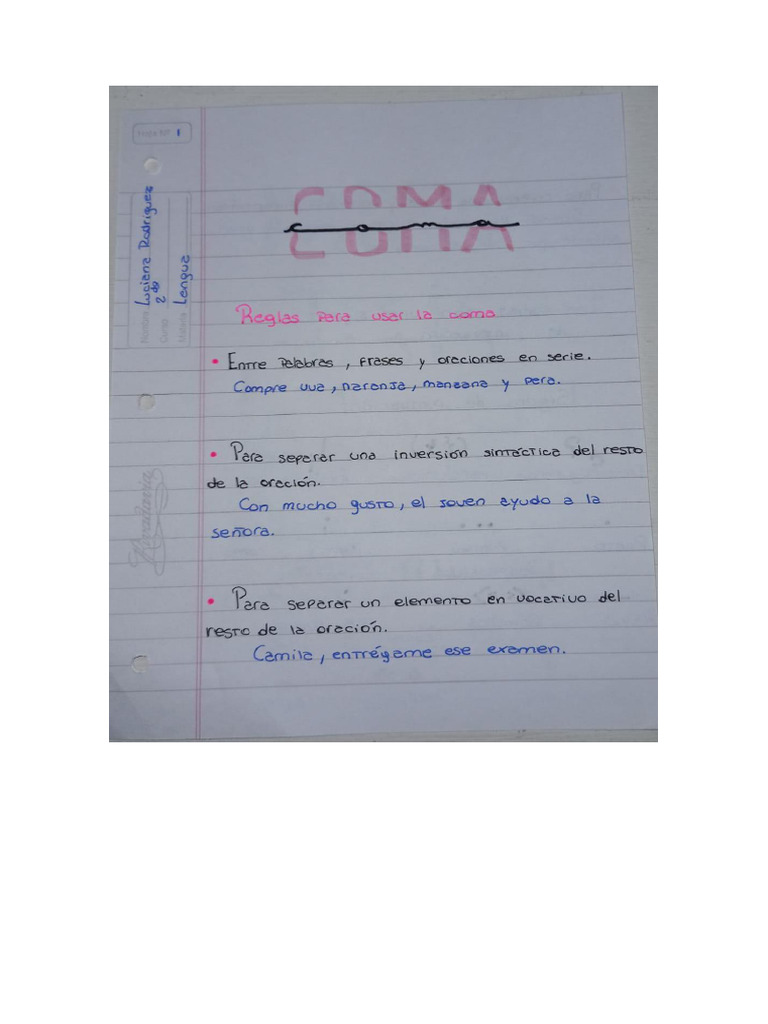 Hoja Nº 1
Nombre Luciana Rodriguez
Curso 2do
Materia Lengua
Rivadavia
COMA
coma
Reglas para usar la coma
• Entre palabras, frases y oraciones en serie.
Compre uva, naranja, manzana y pera.
• Para separar una inversión sintáctica del resto
de la oración.
Con mucho gusto, el joven ayudo a la
señora.
• Para separar un elemento en vocativo del
resto de la oración.
Camila, entrégame ese examen.